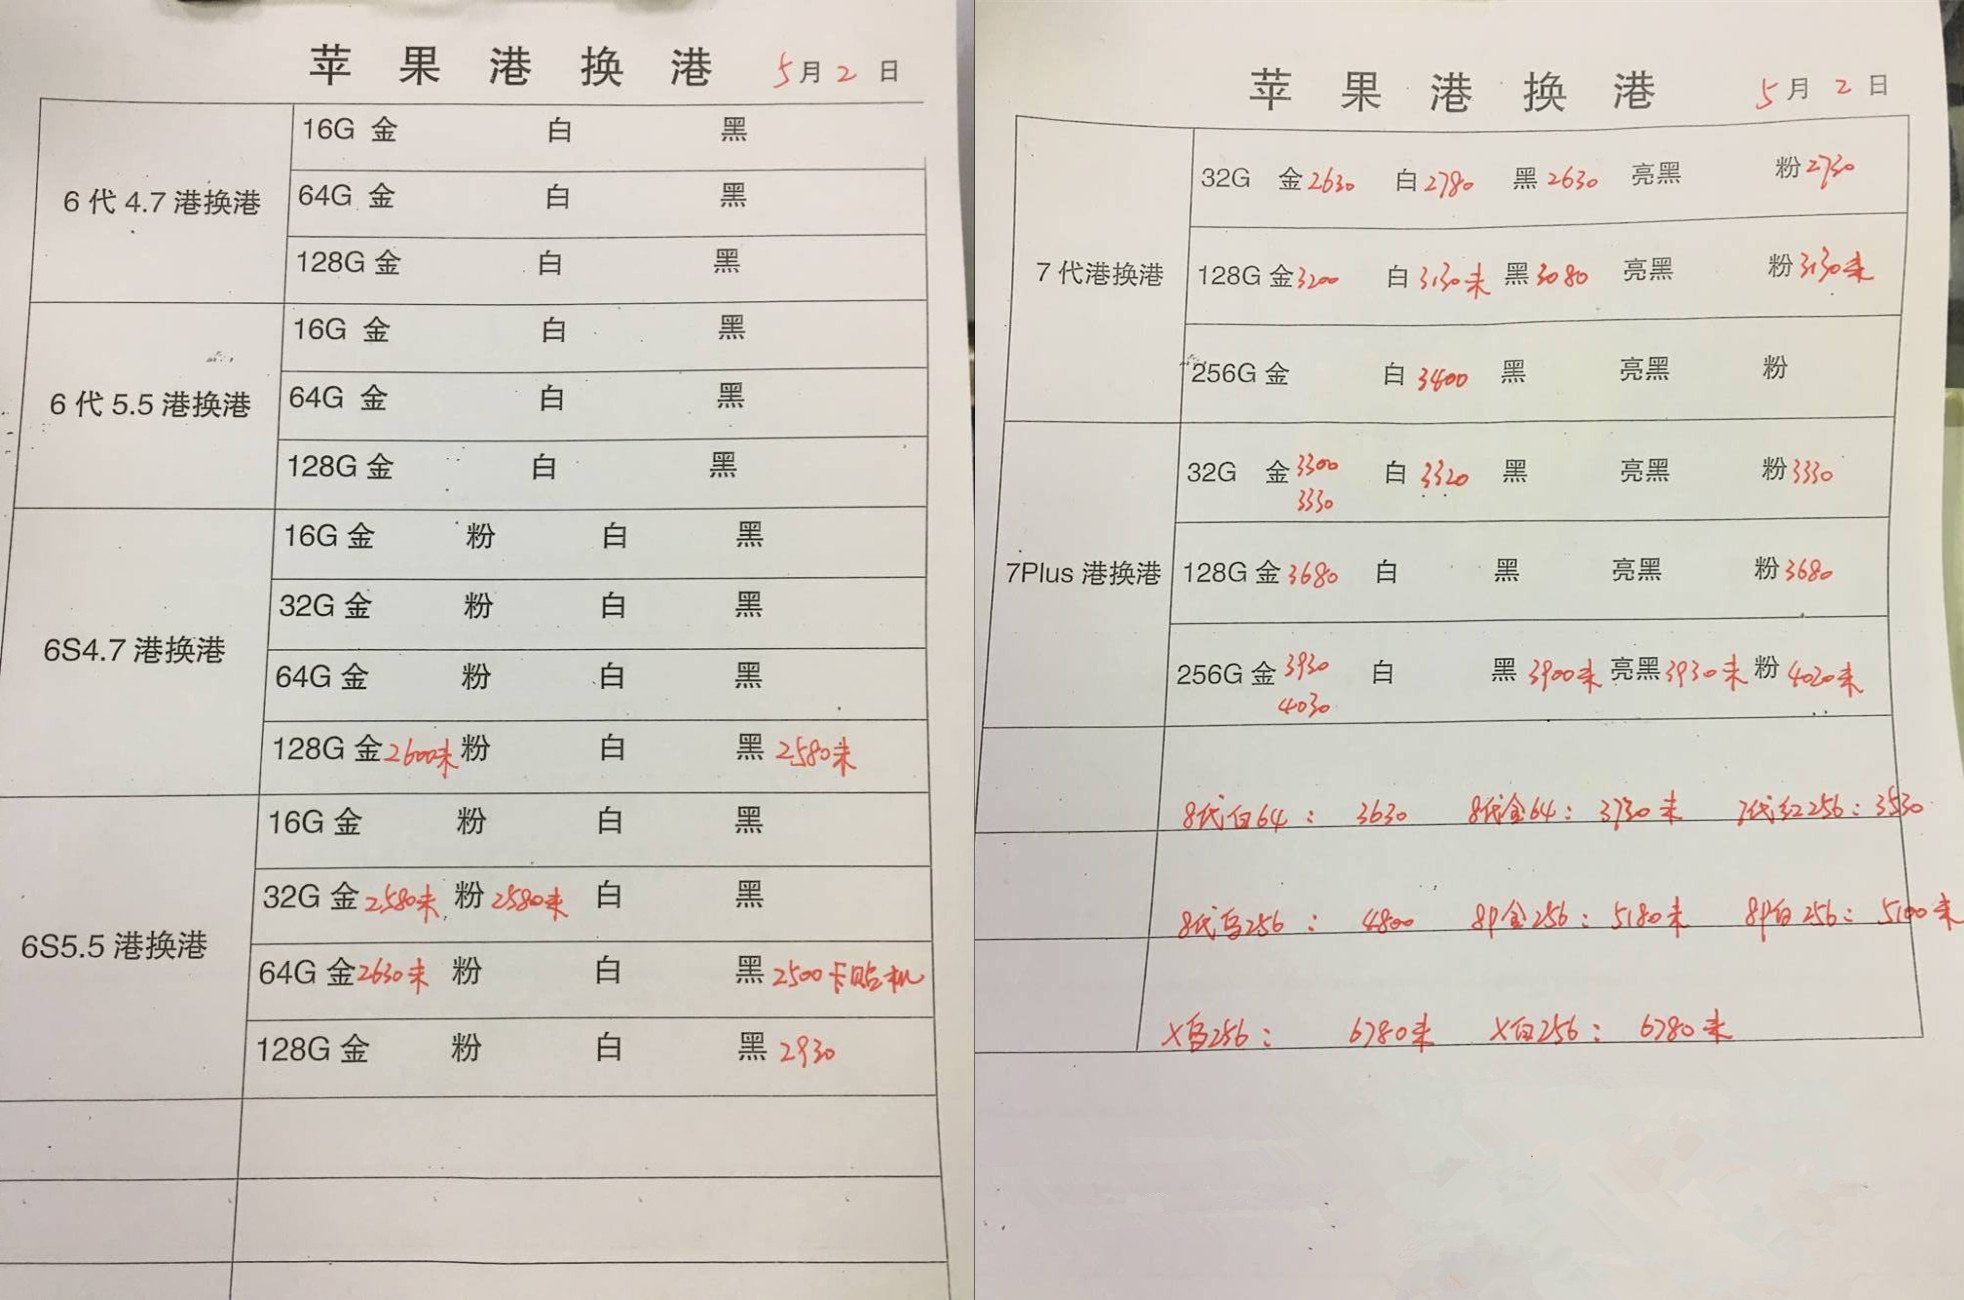 苹果港换港 5月2日
6代4.7港换港
16G 金 白 黑
64G 金 白 黑
128G 金 白 黑
6代5.5港换港
16G 金 白 黑
64G 金 白 黑
128G 金 白 黑
6S4.7港换港
16G 金 粉 白 黑
32G 金 粉 白 黑
64G 金 粉 白 黑
128G 金2600未 粉 白 黑 2580未
6S5.5港换港
16G 金 粉 白 黑
32G 金2580未 粉2580未 白 黑
64G 金2630未 粉 白 黑2500卡贴机
128G 金 粉 白 黑 2930
苹果港换港 5月2日
7代港换港
32G 金2630 白2780 黑2630 亮黑 粉2730
128G 金3200 白3130未 黑3080 亮黑 粉3130未
256G 金 白3400 黑 亮黑 粉
7Plus港换港
32G 金3300 白3320 黑 亮黑 粉3330
3330
128G 金3680 白 黑 亮黑 粉3680
256G 金3930 白 黑3900未 亮黑3930未 粉4020未
4030
8代白64: 3630 8代金64: 3730未 7代红256: 3530
8代乌256: 4800 8P金256: 5180未 8P白256: 5100未
X乌256: 6780未 X白256: 6780未